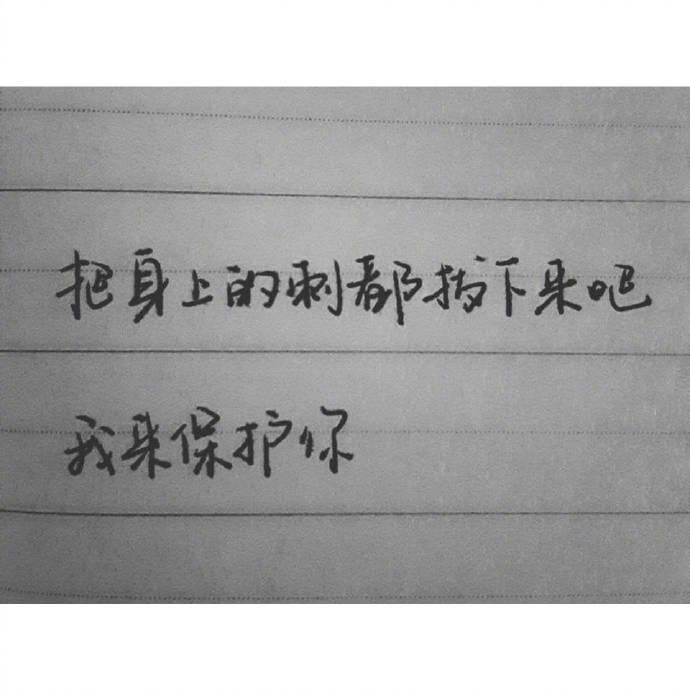 把身上的刺都拔下来吧
我来保护你